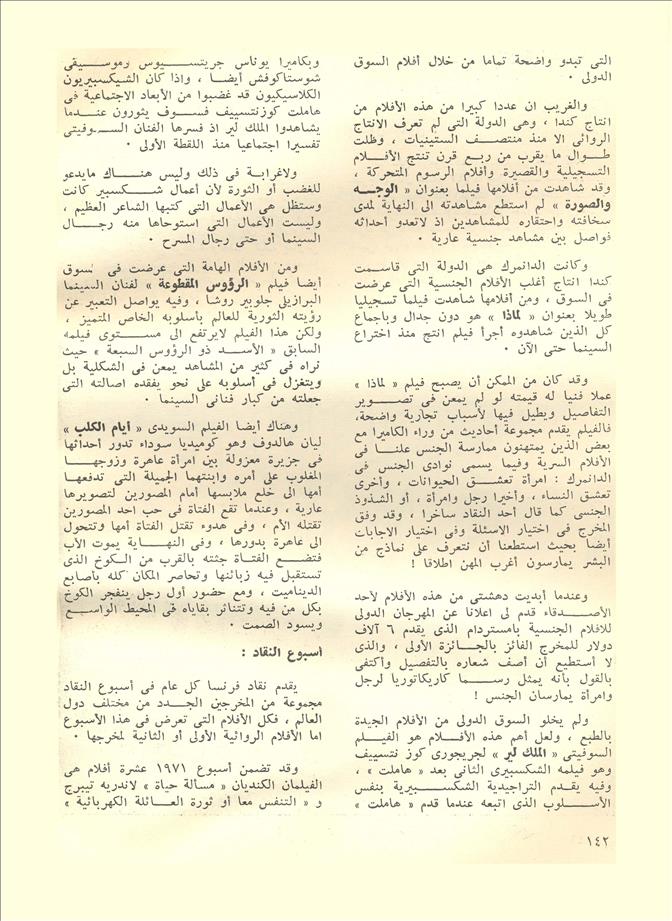 التى تبدو واضحة تماما من خلال أفلام السوق
الدولى .
والغريب ان عددا كبيرا من هذه الأفلام من
انتاج كندا ، وهى الدولة التى لم تعرف الانتاج
الروائى الا منذ منتصف الستينيات ، وظلت
طوال ما يقرب من ربع قرن تنتج الأفلام
التسجيلية والقصيرة وأفلام الرسوم المتحركة ،
وقد شاهدت من أفلامها فيلما بعنوان « الوجه
والصورة » لم استطع مشاهدته الى النهاية لمدى
سخافته واحتقاره للمشاهدين اذ لاتعدو أحداثه
فواصل بين مشاهد جنسية عارية .
وكانت الدانمرك هى الدولة التى قاسمت
كندا انتاج أغلب الأفلام الجنسية التى عرضت
فى السوق ، ومن أفلامها شاهدت فيلما تسجيليا
طويلا بعنوان « لماذا » هو دون جدال وباجماع
كل الذين شاهدوه أجرأ فيلم انتج منذ اختراع
السينما حتى الآن .
وقد كان من الممكن أن يصبح فيلم « لماذا »
عملا فنيا له قيمته لو لم يمعن فى تصوير
التفاصيل ويطيل فيها لأسباب تجارية واضحة،
فالفيلم يقدم مجموعة أحاديث من وراء الكاميرا مع
بعض الذين يمتهنون ممارسة الجنس علنا فى
الأفلام السرية وفيما يسمى نوادى الجنس فى
الدانمرك : امرأة تعشق الحيوانات ، وأخرى
تعشق النساء ، وأخيرا رجل وامرأة ، أو الشذوذ
الجنسى كما قال أحد النقاد ساخرا ، وقد وفق
المخرج فى اختيار الاسئلة وفى اختيار الاجابات
أيضا بحيث استطعنا أن نتعرف على نماذج من
البشر يمارسون أغرب المهن اطلاقا !
وعندما أبديت دهشتى من هذه الأفلام لأحد
الأصدقاء قدم لى اعلانا عن المهرجان الدولى
للافلام الجنسية بامستردام الذى يقدم ٦ آلاف
دولار للمخرج الفائز بالجائزة الأولى ، والذى
لا أستطيع أن أصف شعاره بالتفصيل وأكتفى
بالقول بأنه يمثل رسما كاريكاتوريا لرجل
وامرأة يمارسان الجنس !
ولم يخلو السوق الدولى من الأفلام الجيدة
بالطبع ، ولعل أهم هذه الأفلام هو الفيلم
السوفيتى « الملك لير » لجريجورى كوز نتسييف
وهو فيلمه الشكسبيرى الثانى بعد « هاملت » ،
وفيه يقدم التراجيدية الشكسبيرية بنفس
الأسلوب الذى اتبعه عندما قدم « هاملت »
وبكاميرا يوناس جريتسيوس وموسيقى
شوستاكوفش أيضا ، واذا كان الشيكسبيريون
الكلاسيكيون قد غضبوا من الأبعاد الاجتماعية فى
هاملت كوزنتسييف فسوف يثورون عندما
يشاهدوا الملك لير اذ فسرها الفنان السوفيتى
تفسيرا اجتماعيا منذ اللقطة الأولى .
ولاغرابة فى ذلك وليس هناك مايدعو
للغضب أو الثورة لأن أعمال شكسبير كانت
وستظل هى الأعمال التى كتبها الشاعر العظيم ،
وليست الأعمال التى استوحاها منه رجال
السينما أو حتى رجال المسرح .
ومن الأفلام الهامة التى عرضت فى السوق
أيضا فيلم « الرؤوس المقطوعة » لفنان السينما
البرازيلى جلوبير روشا ، وفيه يواصل التعبير عن
رؤيته الثورية للعالم بأسلوبه الخاص المتميز ،
ولكن هذا الفيلم لايرتفع الى مستوى فيلمه
السابق « الأسد ذو الرؤوس السبعة » حيث
نراه فى كثير من المشاهد يمعن فى الشكلية بل
ويتغزل فى أسلوبه على نحو يفقده اصالته التى
جعلته من كبار فنانى السينما .
وهناك أيضا الفيلم السويدى « أيام الكلب »
ليان هالدوف وهو كوميديا سوداء تدور أحداثها
فى جزيرة معزولة بين امرأة عاهرة وزوجها
المغلوب على أمره وابنتهما الجميلة التى تدفعها
أمها الى خلع ملابسها أمام المصورين لتصويرها
عارية ، وعندما تقع الفتاة فى حب احد المصورين
تقتله الأم ، وفى هدوء تقتل الفتاة أمها وتتحول
الى عاهرة بدورها ، وفى النهاية يموت الأب
فتضع الفتاة جثته بالقرب من الكوخ الذى
تستقبل فيه زبائنها وتحاصر المكان كله بأصابع
الديناميت ، ومع حضور أول رجل ينفجر الكوخ
بكل من فيه وتتناثر بقاياه فى المحيط الواسع
ويسود الصمت .
أسبوع النقاد :
يقدم نقاد فرنسا كل عام فى أسبوع النقاد
مجموعة من المخرجين الجدد من مختلف دول
العالم ، فكل الأفلام التى تعرض فى هذا الأسبوع
اما الأفلام الروائية الأولى أو الثانية لمخرجها .
وقد تضمن أسبوع ١٩٧١ عشرة أفلام هى
الفيلمان الكنديان « مسألة حياة » لاندريه تيبرج
و « التنفس معا أو ثورة العائلة الكهربائية »
١٤٢